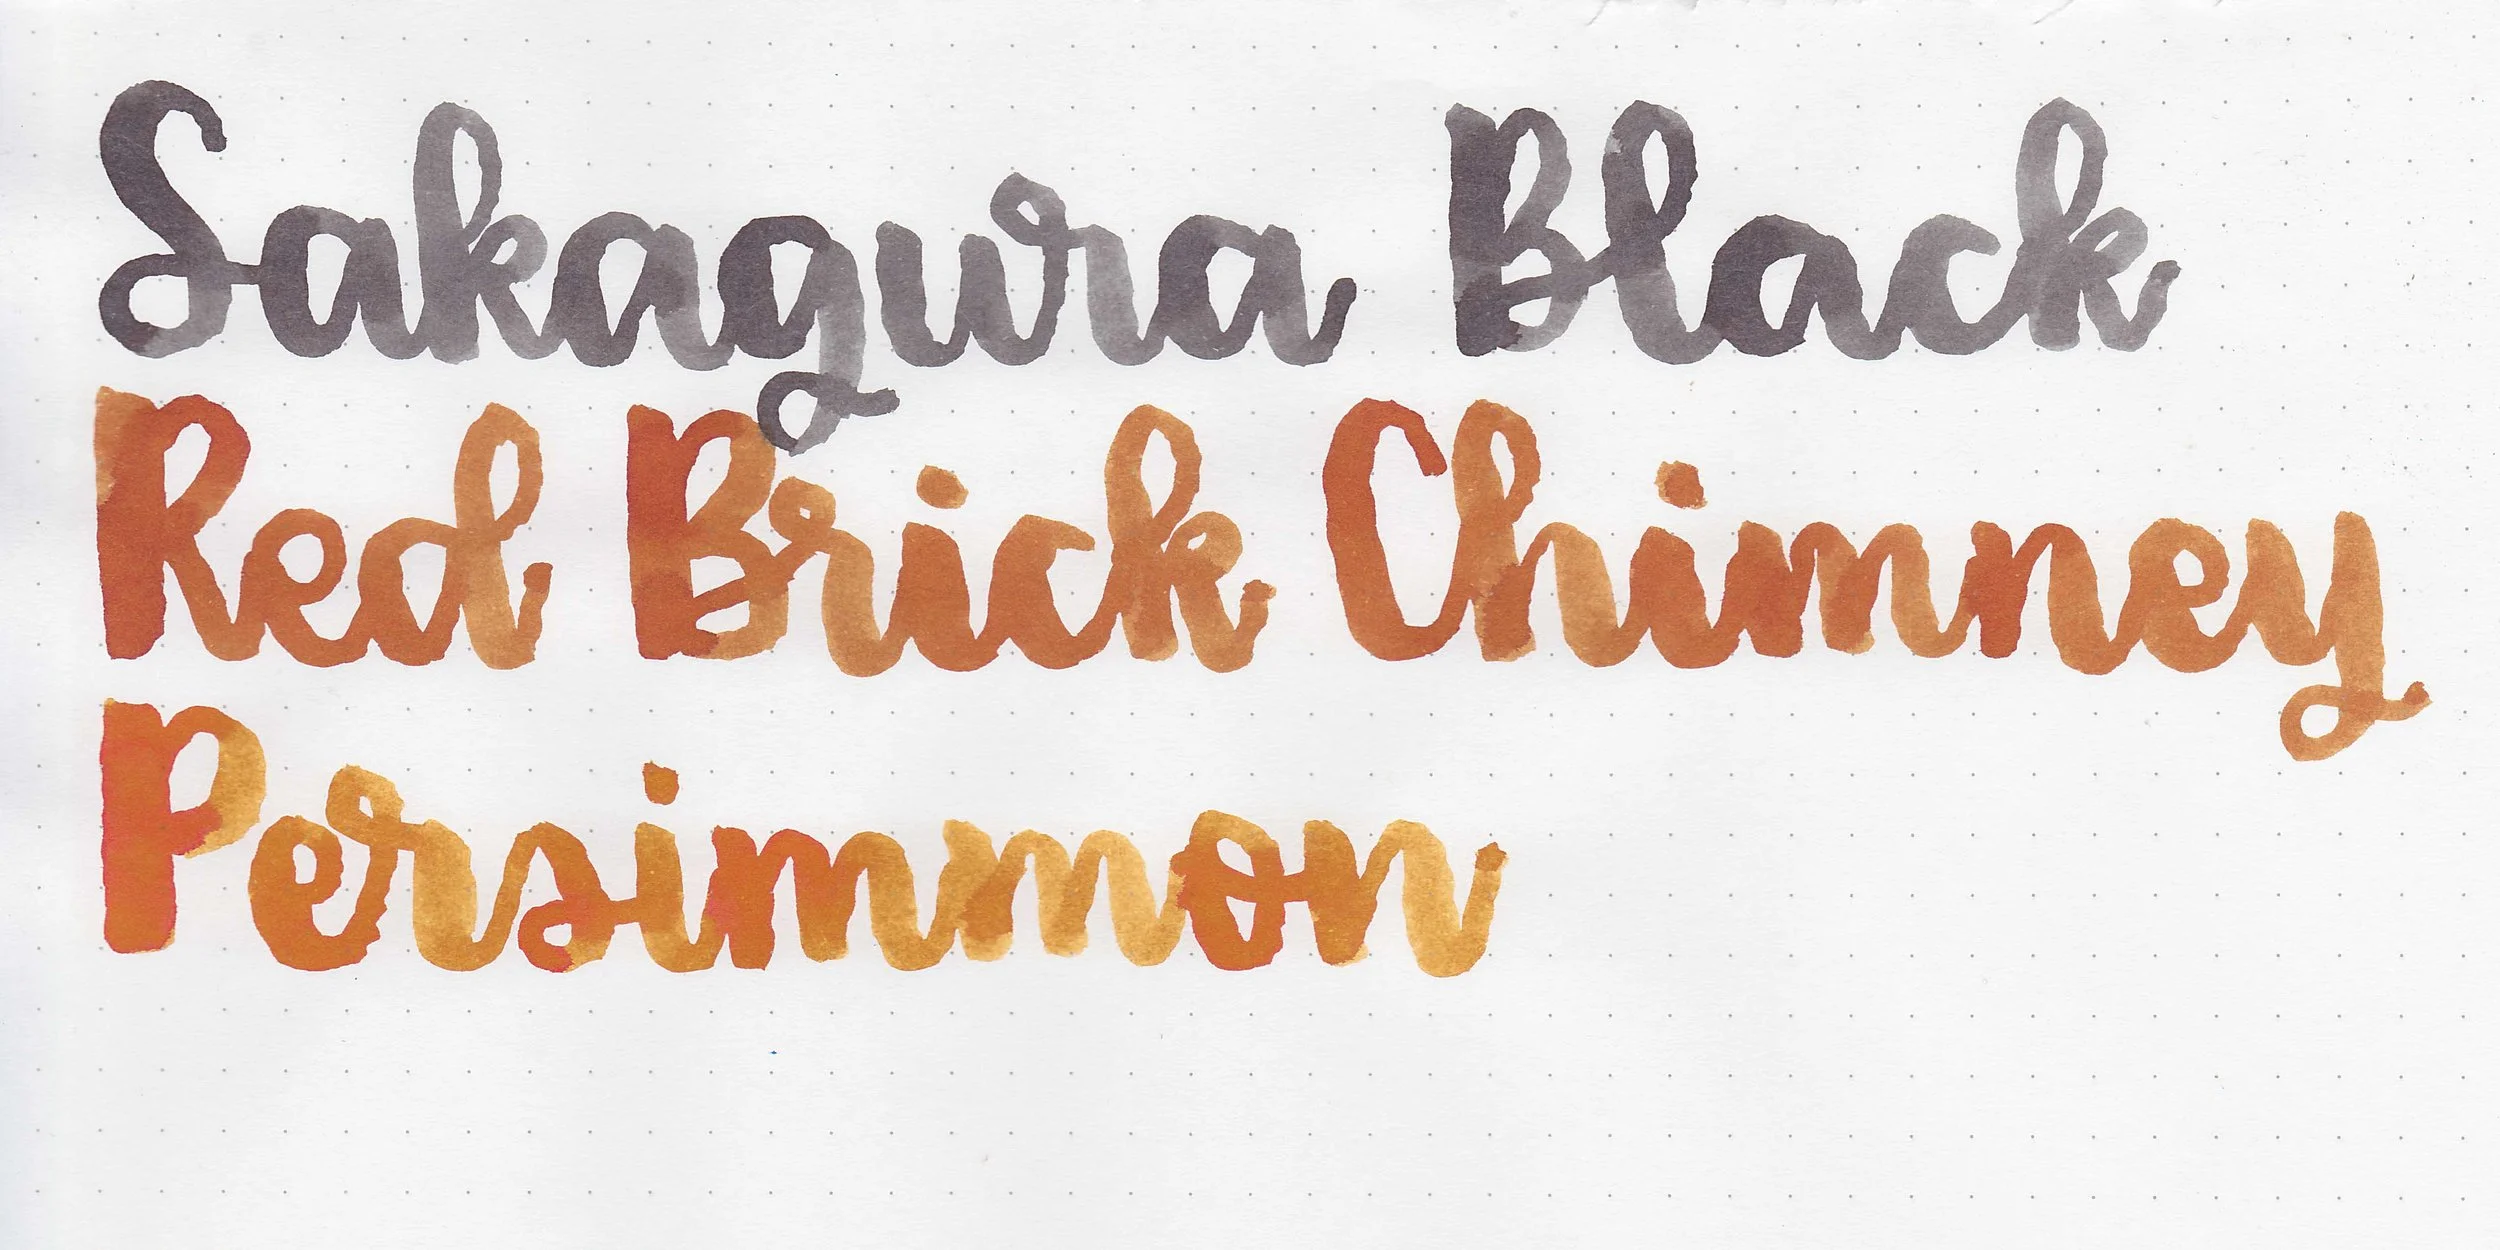 Sakagura Black
Red Brick Chimney
Persimmon